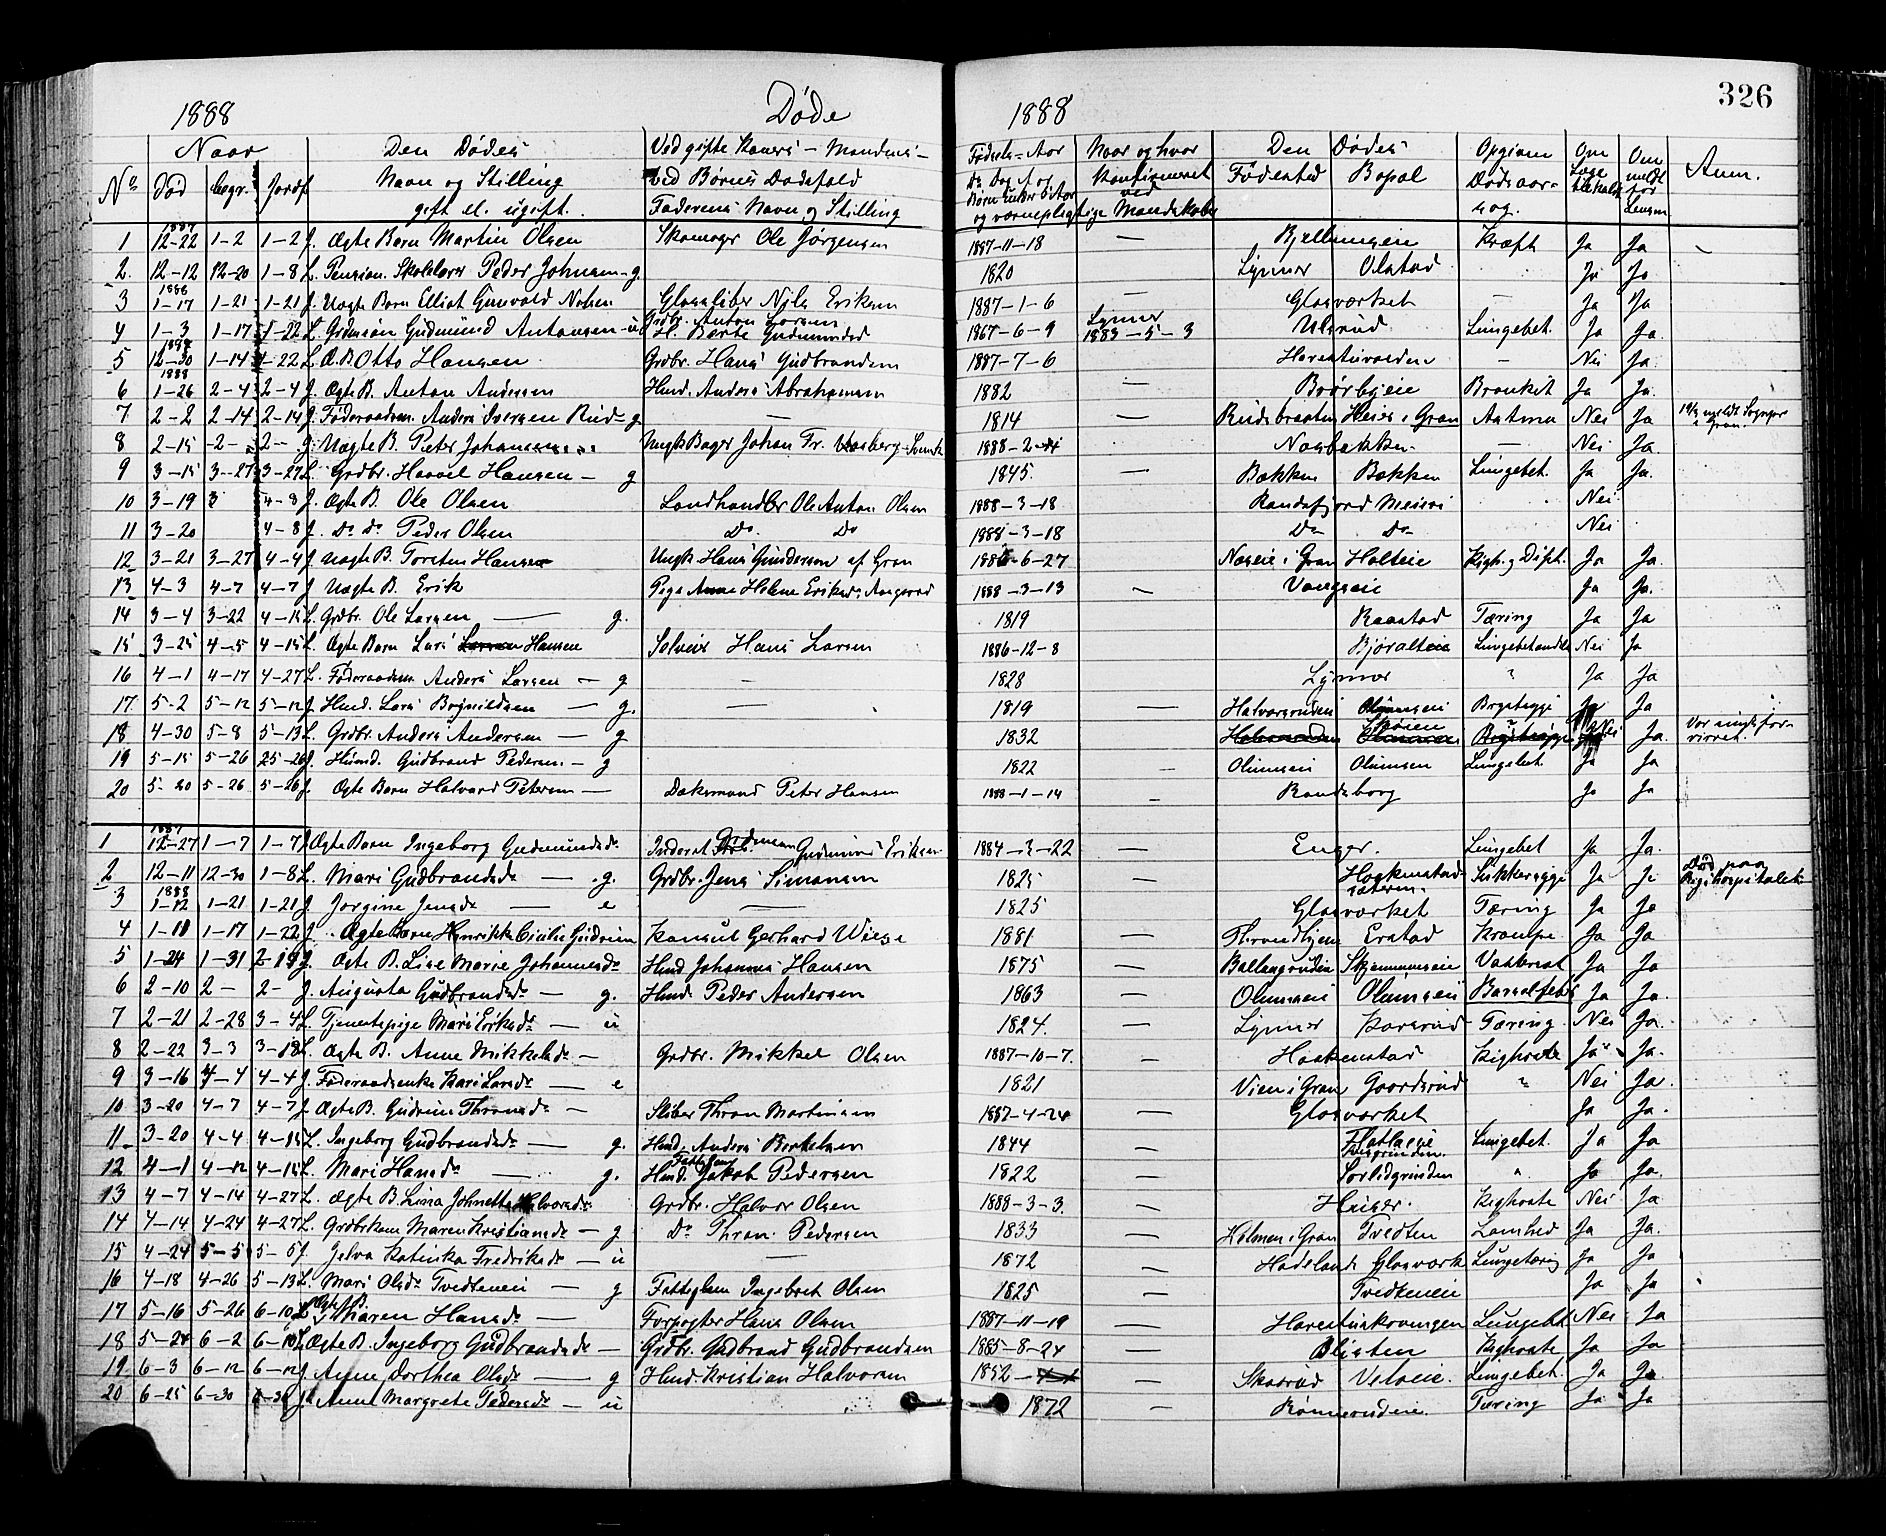 326
1888 Døde 1888
Naar Den Dødes Ved gifte Koners — Mandens — Fødsels-Aar Naar og hvor Den Dødes Opgiven Om Om Anm.
No Død begr. Jordf. Navn og Stilling ved Børns Dødsfald Do Dag for konfirmeret Fødested Bopæl Dødsaar- Læge meldt
gift el. ugift. Faderens Navn og Stilling og værnepligtige Mandskaber ved sag. tilkaldt for Lensm
1887
1 12-22 1-2 1-2 J. Ægte Barn Martin Olsen Skomager Ole Jørgensen 1887-11-18 — Bjellumseie Kræft Ja Ja
2. 12-12 12-20 1-8 L. Pension. Skolelærer Peder Johnsen - g 1820 Lynner Olstad Ja Ja
1888
3 1-17 1-21 1-21 J. Uægte Barn Elliot Gunvald Nilsen Glassliber Nils Eriksen 1887-1-6 — Glasværket — Ja Ja
4 1-3 1-17 1-22 L. Grdmsøn Gudmund Antonsen - u Grdbr. Anton Larsen H. Berte Gudmundsd 1867-6-9 Lynner 1883-5-3 Ulsrud Lungebet. Ja Ja.
1887
5 12-30 1-14 1-22 L. Æ.B. Otto Hansen Grdbr. Hans Gudbrandsen 1887-7-6 Harestuvolden — Nei Ja
1888
6 1-26 2-4 2-4 J. Ægte B. Anton Andersen Husm. Anders Abrahamsen 1882 — Brørbyeie Bronkit Ja Ja.
7 2-2 2-14 2-14 J. Føderaadsm. Anders Iversen Rud - g — 1814 — Rudsbraaten Heier i Gran Astma Nei Ja 14/2 meldt Sognepr i Gran.
8 2-15 -2- 2- J. Uægte B. Peter Johansen Ungk. Bager Johan Fr. 1888-2- Noesbakken — Nei Ja.
9 3-15 3-27 3-27 L. Grdbr. Haavel Hansen — g 1845. — Bækken Bækken Lungebet. Ja Ja.
10 3-19 3 4-8 J. Ægte B. Ole Olsen Landhandler Ole Anton Olsen 1888-3-18 Randsfjord Meieri Nei
11 3-20 4-8 J. Do Do Peder Olsen Do Do 1888-3-18 Do Do Nei
12 3-21 3-27 4-4 J. Uægte B. Torsten Hansen Ungk. Hans Gundersen af Gran 1886-6-27 Næseie i Gran Holteie Kigh. og Dift. Ja Ja.
13 4-3 4-7 4-7 J. Uægte B. Erik Pige Anne Helene Eriksd. 1888-3-13 — Vangseie Ja Ja.
14 3-4 3-22 4-15 L. Grdbr. Ole Larsen — g. 1819 Raastad Tæring Ja Ja
15 3-25 4-5 4-15 L. Ægte Barn Lars Larsen Hansen Selveier Hans Larsen 1886-12-8 Bjøralteie Lungebetændelse Nei Ja
16 4-1 4-17 4-27 L. Føderaadsm. Anders Larsen — g — 1828 Lynner " Ja Ja
17 5-2 5-12 5-12 J. Husm. Lars Bognildsen — g. — 1819 — Halvorsrudeie Olumseie Brystsyge Ja Ja
18 4-30 5-8 5-13 L. Grdbr. Anders Andersen — g 1832 Skøien Nei Ja. Var sindsforvirret.
19 5-15 5-26 25-26 J. Husmd. Gudbrand Pedersen — g 1822 — Olumseie Olumseie Lungebet. Ja Ja
20 5-20 5-26 5-26 J. Ægte Barn Halvard Petersen — Dæksmand Peter Hansen 1888-1-14 — Randsborg Ja Ja
1887
1 12-27 1-7 1-7 J Ægte Barn Ingeborg Gudmundsdr Inderst Gudmund Eriksen 1884-3-22 — Enger. Lungebet Ja Ja.
2 12-11 12-30 1-8 L. Mari Gudbrandsdr — g. Grdbr. Jens Simensen 1825 — Haakenstad sæteren Sukkersyge Ja Ja Død paa Rigshospitalet
1888
3 1-12 1-21 1-21 J Jorgine Jensdr — e — 1825 Glasværket Tæring Ja Ja
4 1-11 1-17 1-22 J. Ægte Barn Henrikke Cicilie Gudrun Konsul Gerhard Wiese 1881 — Throndhjem Erstad Krampe Ja Ja
5 1-24 1-31 2-19 J. Ægte B. Lise Marie Johannesdr Husmd Johannes Hansen 1875 — Ballangrudeie Skjerumseie Vattersot Ja Ja
6 2-10 2- 2- J. Augusta Gudbrandsdr — g. Husm. Peder Andersen 1863 — Olumseie Olumseie Barselfeber Ja Ja.
7 2-21 2-28 3-4 L. Tjenestepige Mari Eriksdr — u 1824. — Lynner Korsrud Tæring. Nei Ja.
8 2-22 3-3 3-18 L. Ægte B. Anne Mikkelsdr — Grdbr. Mikkel Olsen 1887-10-7. — Haakenstad Kighoste Ja Ja.
9 3-16 4-4 4-4 J. Føderaadsenke Kari Larsdr — e 1821 Vien i Gran Gaardsrud " Nei Ja.
10 3-20 4-7 4-7 J. Ægte B. Gudrun Thronsdr — Sliber Thron Martinsen 1887-4-24 — Glasværket Ja Ja.
11 3-20 4-4 4-15 L. Ingeborg Gudbrandsdr — g. Husm. Anders Bertelsen 1844 — Flatlaeie Lungebet. Ja Ja
12 4-1 4-12 4-15 L. Mari Hansdr — g. Husm. Jakob Pedersen 1822 — Sørlidgrinden " Ja Ja.
13 4-7 4-14 4-27 L. Ægte B. Lina Johnette Halvorsdr Grdbr. Halvor Olsen 1888-3-3. — Heier. Kighoste Nei Ja
14 4-14 4-24 4-27 L. Grdbrkone Maren Kristiansdr — g Do Thron Pedersen 1833 — Holmen i Gran Tvedten Lamhed Ja Ja.
15 4-24 5-5 5-5 J. Jelva Katinka Fredriksdr — u — 1872 — Hadelands Glasværk Lungetæring Ja Ja
16 4-18 4-26 5-13 L. Mari Olsdr Tvedteneie — g Fattiglem Ingebret Olsen 1825 — Tvedteneie Ja Ja
17 5-16 5-26 6-10 L. Ægte B. Karen Hansdr — Forpagter Hans Olsen 1887-11-19 — Harestuskovengen Lungebet Nei Ja
18 5-24 6-2 6-10 L. Ægte B. Ingeborg Gudbrandsdr — Grdbr. Gudbrand Gudbrandsen 1885-8-24 — Blisten Kighoste Ja Ja
19. 6-3 6-12 6-12 J. Anne Dorthea Olsdr — g Husm. Kristian Halvorsen 1852 — Skaarud Velseie. Lungebet. Ja Ja
20 6-25 6-30 6-30 J. Anne Margrete Pedersdr — u 1872 — Rønnerudeie. Tæring Ja Ja